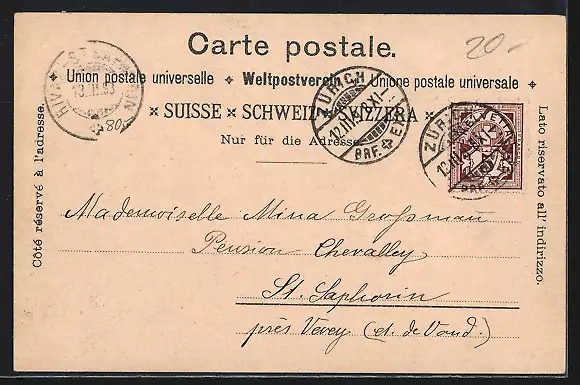 Carte postale.
20.-
Union postale universelle ✦ Weltpostverein ✦ Unione postale universale ✦
× SUISSE × SCHWEIZ × SVIZZERA ×
Nur für die Adresse.
Côté réservé à l'adresse.
Lato riservato all' indirizzo.
ZÜRICH
BRF. EXP.
ZÜR
BRF.
80
Mademoiselle Mina Großmann
Pension Chevalley
St. Saphorin
près Vevey (ct. de Vaud.)